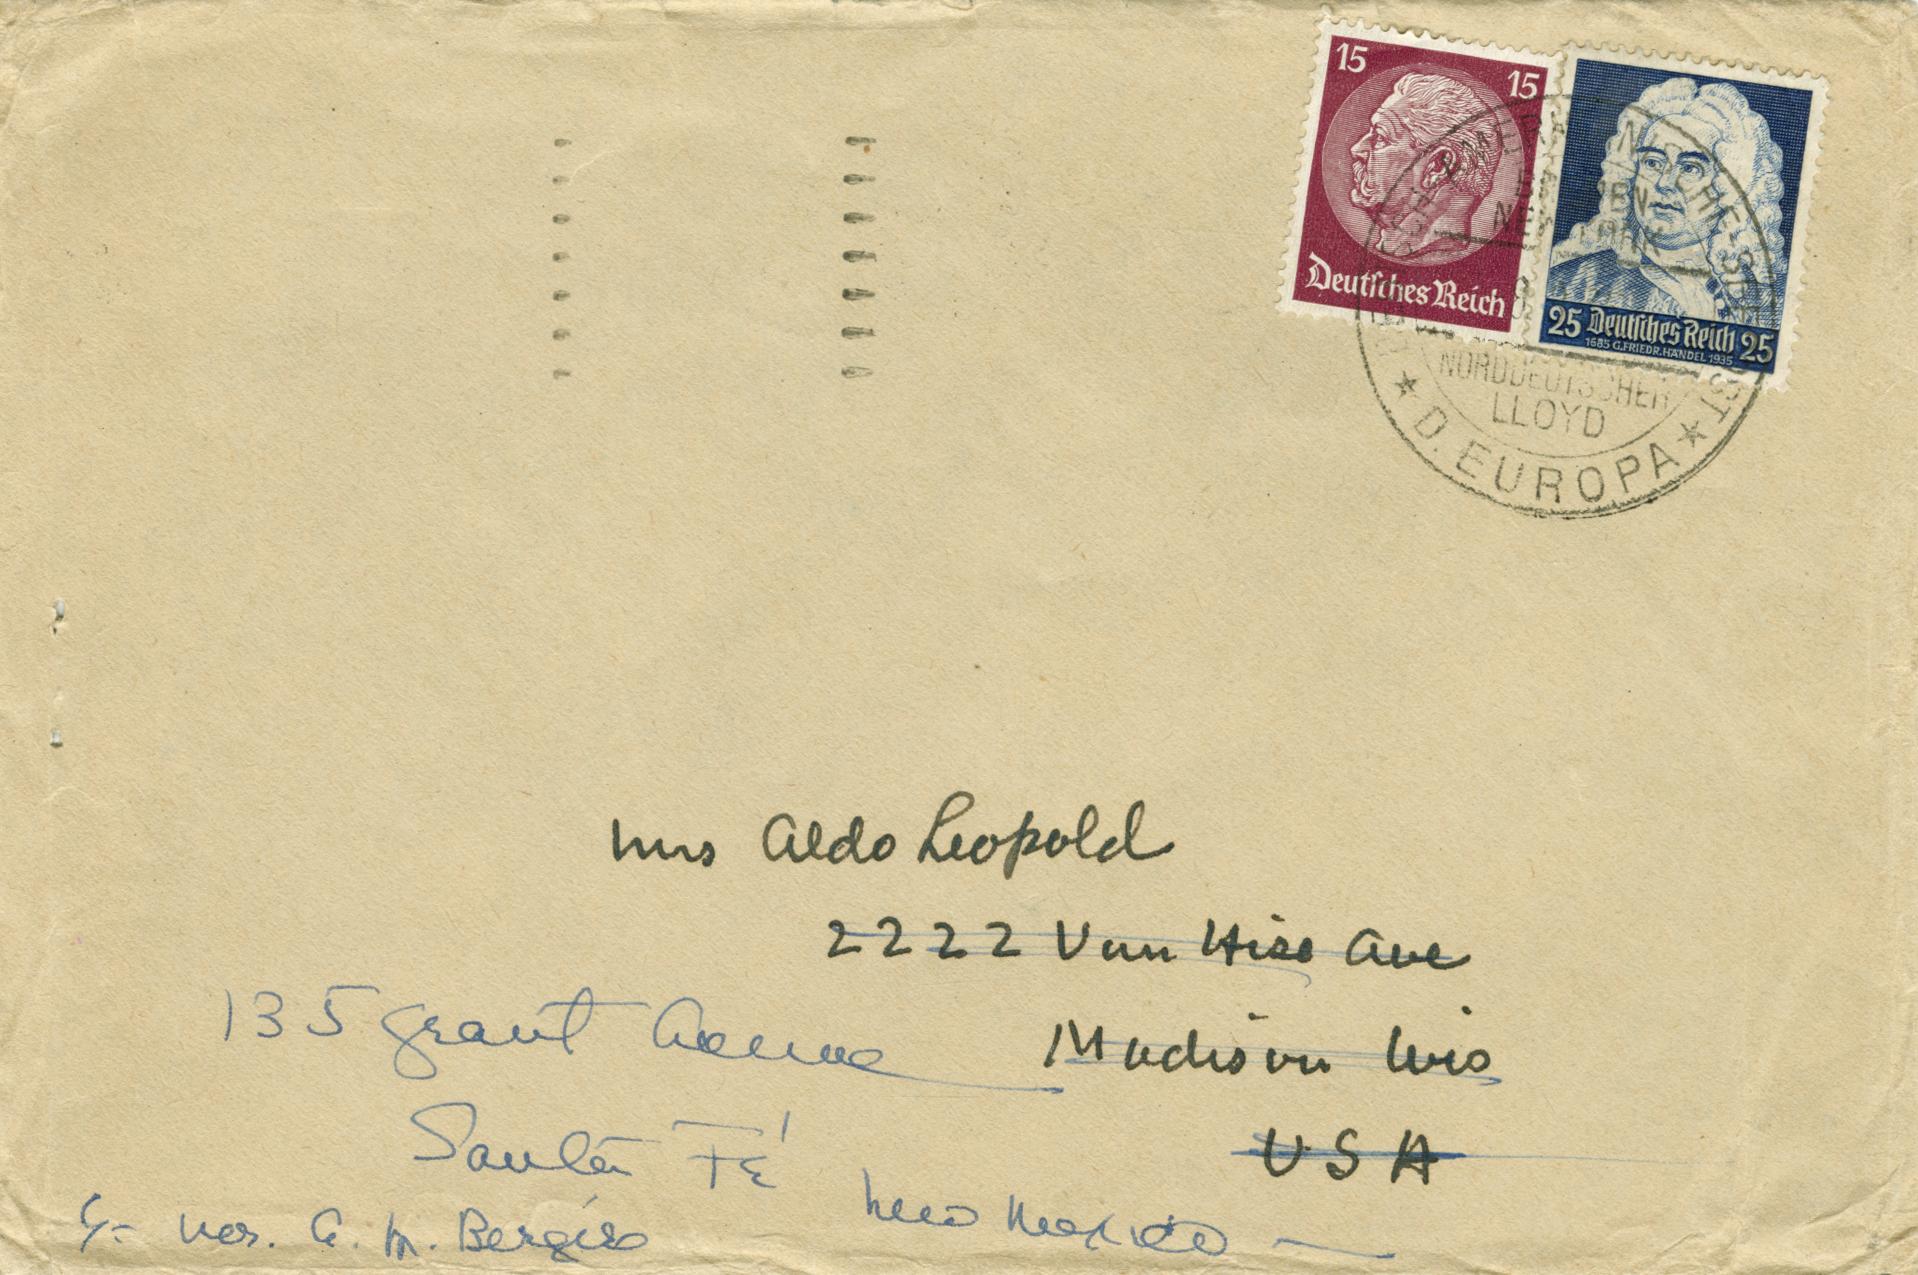 15 15
Deutsches Reich
25 Deutsches Reich 25
1685 G.FRIEDR.HÄNDEL 1935
NEW YORK
NORDDEUTSCHER
LLOYD
★ D. EUROPA ★
Mrs Aldo Leopold
2222 Van Hise Ave
Madison Wis
USA
135 Grant Avenue
Santa Fé
New Mexico
c/o Mrs. A. M. Bergère